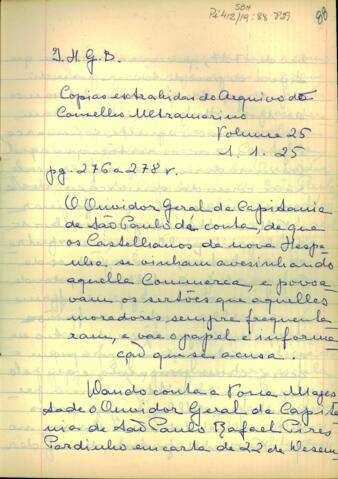 SBH
Pi 412/19:88 P29
88
I. H. G. B.
Copias extrahidas do Arquivo do
Conselho Ultramarino
Volume 25
1. 1. 25
pg. 276 a 278 v.
O Ouvidor Geral da Capitania
de São Paulo dá conta, de que
os Castelhanos de nova Hespa
nha se vinham avesinhando
aquella Commarca, e povoa
vam os sertões que aquelles
moradores sempre frequenta
ram, e vae o papel e informa
ção que se acusa..
Dando conta a Vossa Mages
tade o Ouvidor Geral da Capita
nia de São Paulo Rafael Pires
Pardinho em carta de 22 de Dezem